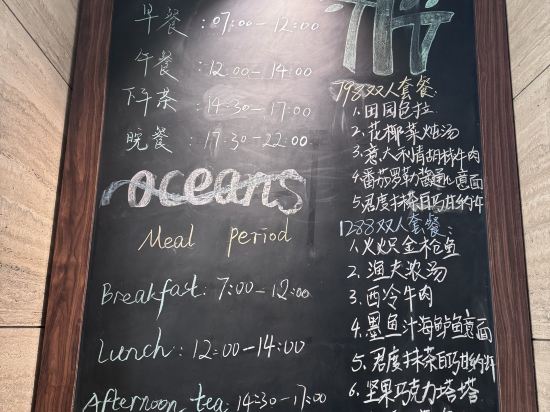 早餐:07:00-12:00
午餐:12:00-14:00
下午茶:14:30-17:00
晚餐:17:30-22:00
oceans
Meal period
Breakfast: 7:00-12:00
Lunch: 12:00-14:00
Afternoon tea: 14:30-17:00
798双人套餐:
1.田园色拉
2.花椰菜炖汤
3.意大利青胡椒牛肉
4.番茄罗勒酱通心意面
5.君度抹茶白巧
1288双人套餐:
1.火炽金枪鱼
2.渔夫浓汤
3.西冷牛肉
4.墨鱼汁海鲈鱼意面
5.君度抹茶白巧
6.坚果巧克力塔塔